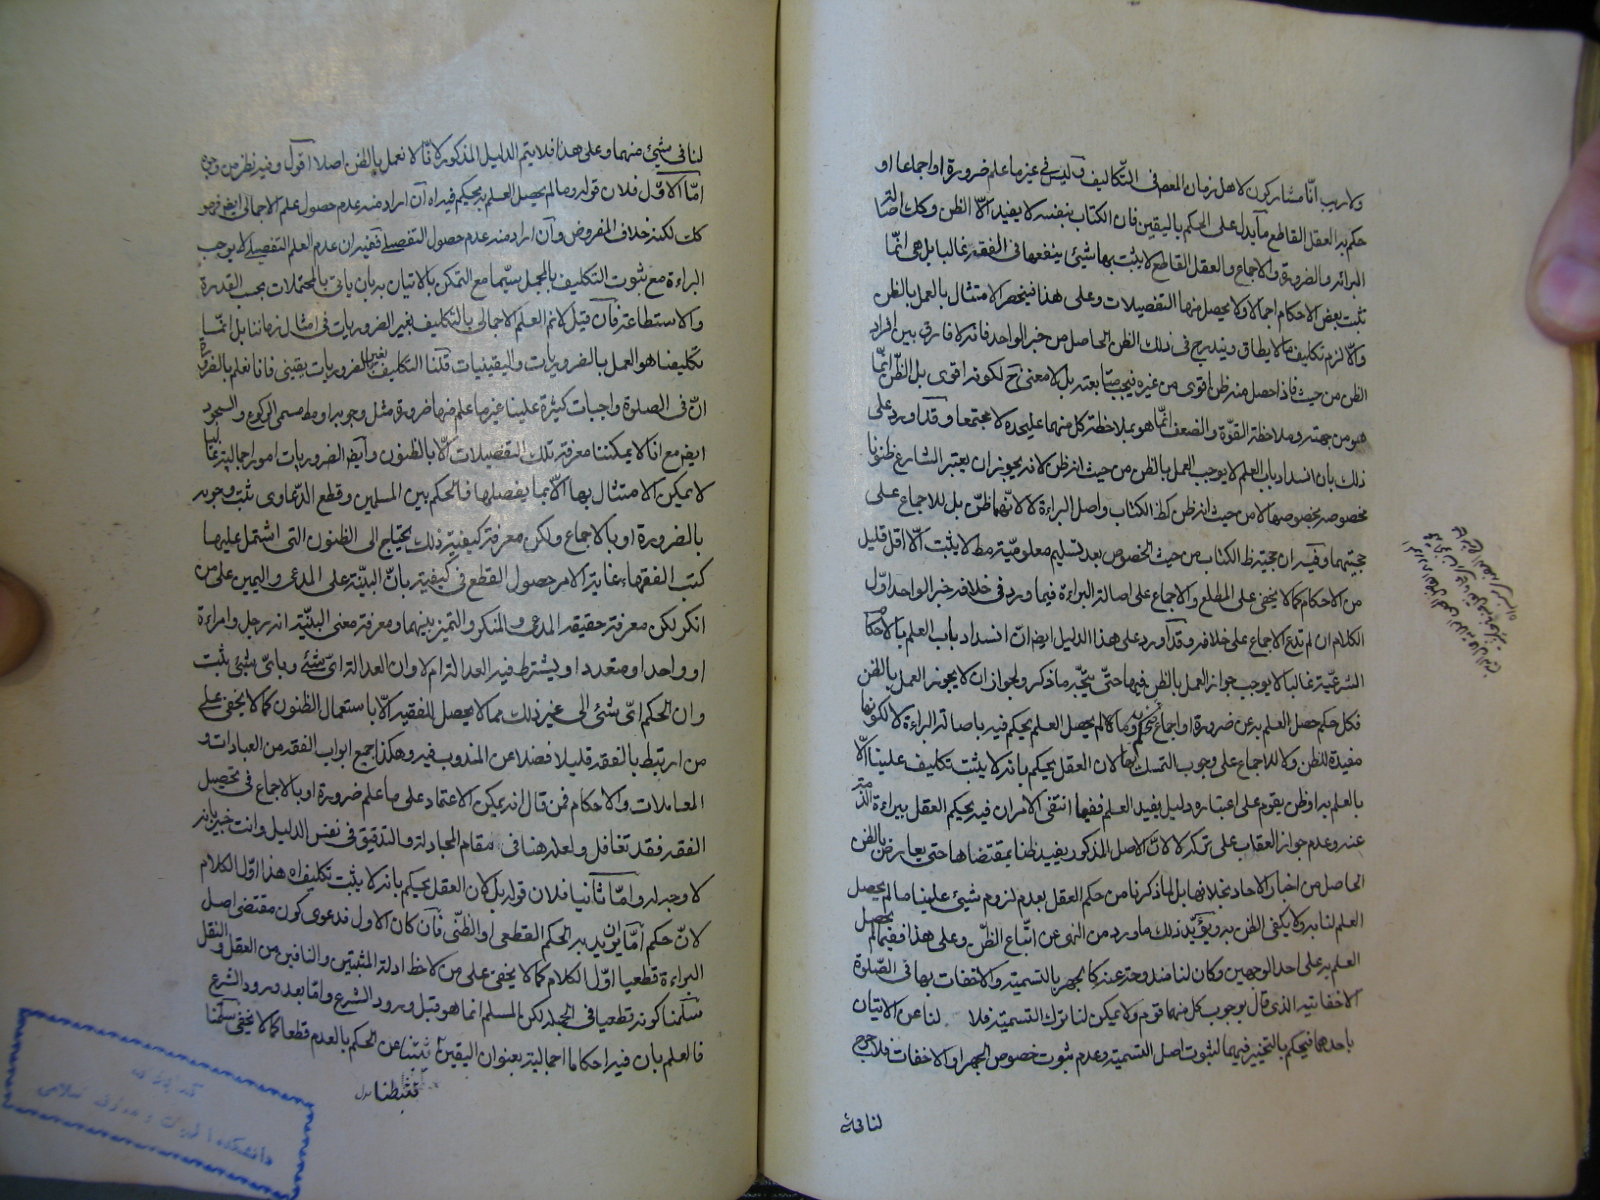 ولا ريب انّا مشاركون لاهل زمان المعص في التكاليف وليس في غير ما علم ضرورة او اجماعا او
حكم به العقل القاطع ما يدل على الحكم باليقين فان الكتاب بنفسه لا يفيد الّا الظن وكك اصالة
البرائة والضرورة والاجماع والعقل القاطع لا يثبت بها شيئ ينفعها في الفقه غالبا بل هي انّما
تثبت بعض الاحكام اجمالا ولا يحصل منها التفصيلات وعلى هذا فينحصر الامتثال بالعمل بالظن
والّا لزم تكليف ما لا يطاق ويندرج في ذلك الظن الحاصل من خبر الواحد فانه لا فارق بين افراد
الظن من حيث فاذا حصل منه ظن اقوى من غيره فيجب متابعته بل لا معنى ح لكونه اقوى بل الظن انّما
هو من جهته وملاحظة القوّة والضعف انّما هو بملاحظة كل منهما عليحدة لا مجتمعا وقد اورد على
ذلك بان انسداد باب العلم لا يوجب العمل بالظن من حيث انه ظن لانه يجوز ان يعتبر الشارع ظنونا
مخصوصة بخصوصها لا من حيث انه ظن كظ الكتاب واصل البراءة لا لانّهما ظنّ بل للاجماع على
حجيتهما وفيه ان حجية ظ الكتاب من حيث الخصوص بعد تسليم معلوميّته مط لا يثبت الّا اقل قليل
من الاحكام كما لا يخفى على المطلع والاجماع على اصالة البراءة فيما ورد في خلافه خبر الواحد اوّل
الكلام ان لم ندع الاجماع على خلافه وقد اورد على هذا الدليل ايضا انّ انسداد باب العلم بالاحكام
الشرعيّة غالبا لا يوجب جواز العمل بالظن فيها حتّى يتّجه ما ذكر ولجواز ان لا يجوز العمل بالظن
فكل حكم حصل العلم به من ضرورة او اجماع نحكم به وما لم يحصل العلم نحكم فيه باصالة البراءة لا لكونها
مفيدة للظن ولا للاجماع على وجوب التمسك بها لان العقل يحكم بانه لا يثبت تكليف علينا الّا
بالعلم به او ظن يقوم على اعتباره دليل يفيد العلم ففيما انتفى الامران فيه يحكم العقل ببراءة الذمة
عنه وعدم جواز العقاب على تركه لا لانّ الاصل المذكور يفيد ظنا بمقتضاها حتى يعارض بالظن
الحاصل من اخبار الاحاد بخلافها بل لما ذكرنا من حكم العقل بعدم لزوم شيئ علينا ما لم يحصل
العلم لنا به ولا يكفي الظن به ويؤيّد ذلك ما ورد من النهى عن اتّباع الظنّ وعلى هذا ففيما لم يحصل
العلم به على احد الوجهين وكان لنا مندوحة عنه كالجهر بالتسمية والاخفات بها في الصّلوة
الاخفاتية الذي قال بوجوب كل منهما قوم ولا يمكن لنا ترك التسمية فلا لنا عن الاتيان
باحدهما فيحكم بالتخيير فيهما لثبوت اصل التسمية وعدم ثبوت خصوص الجهر او الاخفات فلا حرج
لنا في شيئ
لنا في شيئ منهما وعلى هذا فلا يتم الدليل المذكور لانّا لا نعمل بالظن اصلا اقول وفيه نظر من وجوه
امّا الاوّل فلان قوله وما لم يحصل العلم به يحكم فيه اه ان اراد منه عدم حصول علم الاجمالي ايض فهو
كك لكنه خلاف المفروض وان اراد منه عدم حصول التفصيلي ففيه ان عدم العلم التفصيلي لا يوجب
البراءة مع ثبوت التكليف بالمجمل سيّما مع التمكن بالاتيان به بان ياتى بالمحتملات بحسب القدرة
والاستطاعة فان قيل لا نم العلم الاجمالي بالتكليف بغير الضروريات في امثال زماننا بل انما
تكليفنا هو العمل بالضروريات واليقينيات قلنا التكليف بغير الضروريات يقيني فانا نعلم بالضرورة
انّ في الصلوة واجبات كثيرة علينا غير ما علم منها ضرورة مثل وجوبها ومط مسمى الركوع والسجود
ايض مع انا لا يمكننا معرفة تلك التفصيلات الّا بالظنون وايضا الضروريات امور اجمالية غالبا
لا يمكن الامتثال بها الّا بما يفصلها فالحكم بين المسلمين وقطع الدعاوى ثبت وجوبه
بالضرورة او بالاجماع ولكن معرفة كيفية ذلك يحتاج الى الظنون التي اشتمل عليها
كتب الفقهاء غاية الامر حصول القطع في كيفيته بانّ البيّنة على المدعي واليمين على من
انكر لكن معرفة حقيقة المدعي والمنكر والتميز بينهما ومعرفة معنى البيّنة انه رجل وامراءة
او واحد او متعدد او يشترط فيه العدالة ام لا وان العدالة ايّ شئ وبايّ شئ يثبت
وان الحكم ايّ شئ الى غير ذلك مما لا يحصل للفقيه الّا باستعمال الظنون كما لا يخفى على
من ارتبط بالفقه قليلا فضلا عن المندوب فيه وهكذا جميع ابواب الفقه من العبادات و
المعاملات والاحكام فمن قال انه يمكن الاعتماد على ما علم ضرورة او بالاجماع في تحصيل
الفقه فقد تغافل ولعله هنا في مقام المجادلة والتدقيق في نفس الدليل وانت خبير بانه
لا وجه له وامّا ثانيا فلان قوله بل كان العقل يحكم بانه لا يثبت تكليف اه هذا اوّل الكلام
لانّ حكم امّا ان يريد به الحكم القطعي او الظنّي فان كان الاول فدعوى كون مقتضى اصل
البراءة قطعيا اوّل الكلام كما لا يخفى على من لاحظ ادلة المثبتين والنافين من العقل والنقل
سلّمنا كونه قطعيا في الجملة لكن المسلم انما هو قبل ورود الشرع وامّا بعد ورود الشرع
فالعلم بان فيه احكاما اجمالية بعنوان اليقين يثبّتنا عن الحكم بالعدم قطعا كما لا يخفى سلّمنا
تثبطنا بدل
كتابخانه
دانشكده الهيات و معارف اسلامى